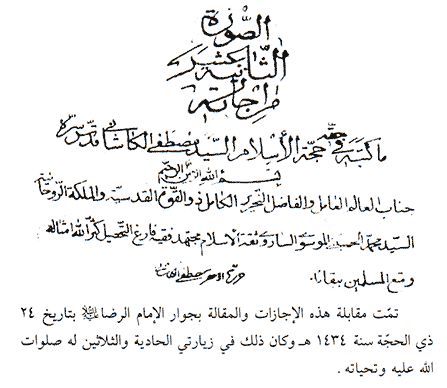 الصورة
الثانية عشر
من إجازة
ما كتبه في حقه حجة الأسلام السيد مصطفى الكاشاني قدس سره
بسم الله الرحمن الرحيم
جناب العالم العامل والفاضل النحرير الكامل ذو القوة القدسية والملكة الروحانية
السيد محمد الحسيني الموسوي الساروي ثقة الاسلام مجتهد فقيه فارغ التحصيل كثر الله امثاله
ومتع المسلمين ببقائه. حرره الاحقر مصطفى
تمّت مقابلة هذه الإجازات والمقالة بجوار الإمام الرضا بتاريخ ٢٤
ذي الحجّة سنة ١٤٣٤ هـ وكان ذلك في زيارتي الحادية والثلاثين له صلوات
الله عليه وتحياته .